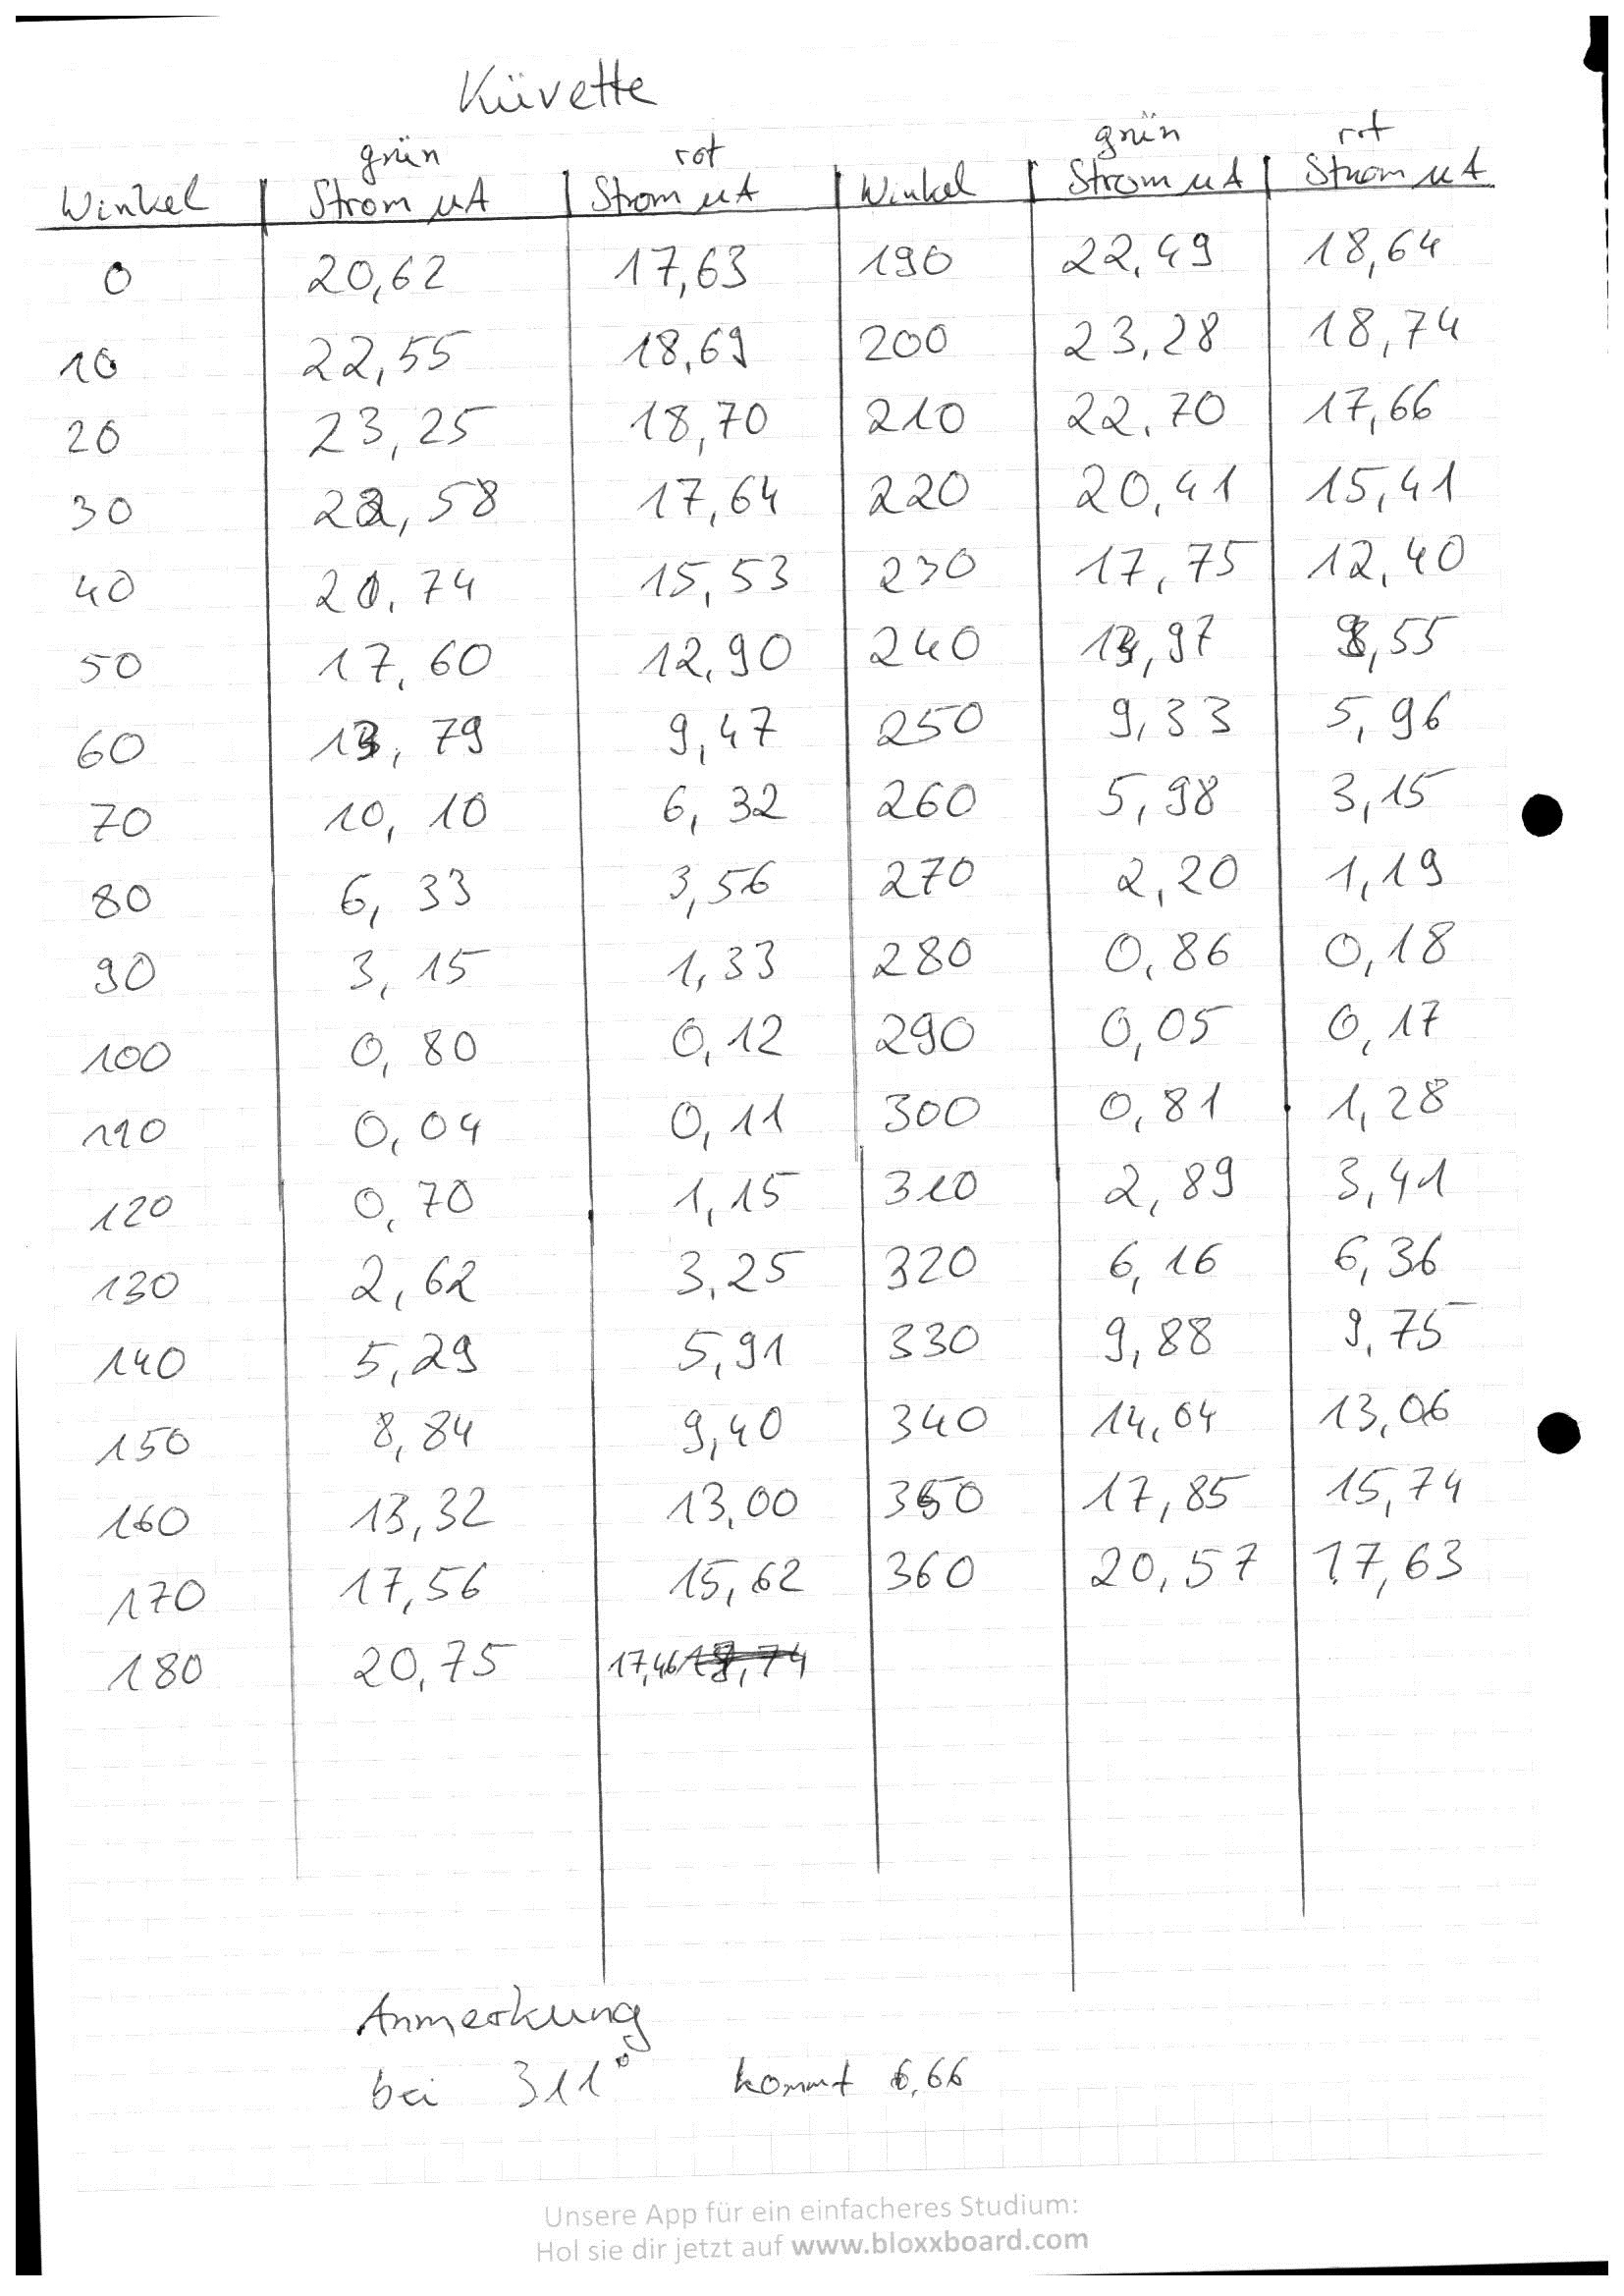 Küvette
grün rot grün rot
Winkel Strom µA Strom µA Winkel Strom µA Strom µA
0 20,62 17,63 190 22,49 18,64
10 22,55 18,69 200 23,28 18,74
20 23,25 18,70 210 22,70 17,66
30 22,58 17,64 220 20,41 15,41
40 20,74 15,53 230 17,75 12,40
50 17,60 12,90 240 13,97 9,55
60 13,79 9,47 250 9,33 5,96
70 10,10 6,32 260 5,98 3,15
80 6,33 3,56 270 2,20 1,19
90 3,15 1,33 280 0,86 0,18
100 0,80 0,12 290 0,05 0,17
110 0,04 0,11 300 0,81 1,28
120 0,70 1,15 310 2,89 3,41
130 2,62 3,25 320 6,16 6,36
140 5,29 5,91 330 9,88 9,75
150 8,84 9,40 340 14,04 13,06
160 13,32 13,00 350 17,85 15,74
170 17,56 15,62 360 20,57 17,63
180 20,75 17,46
Anmerkung
bei 311° kommt 6,66
Unsere App für ein einfacheres Studium:
Hol sie dir jetzt auf www.bloxxboard.com